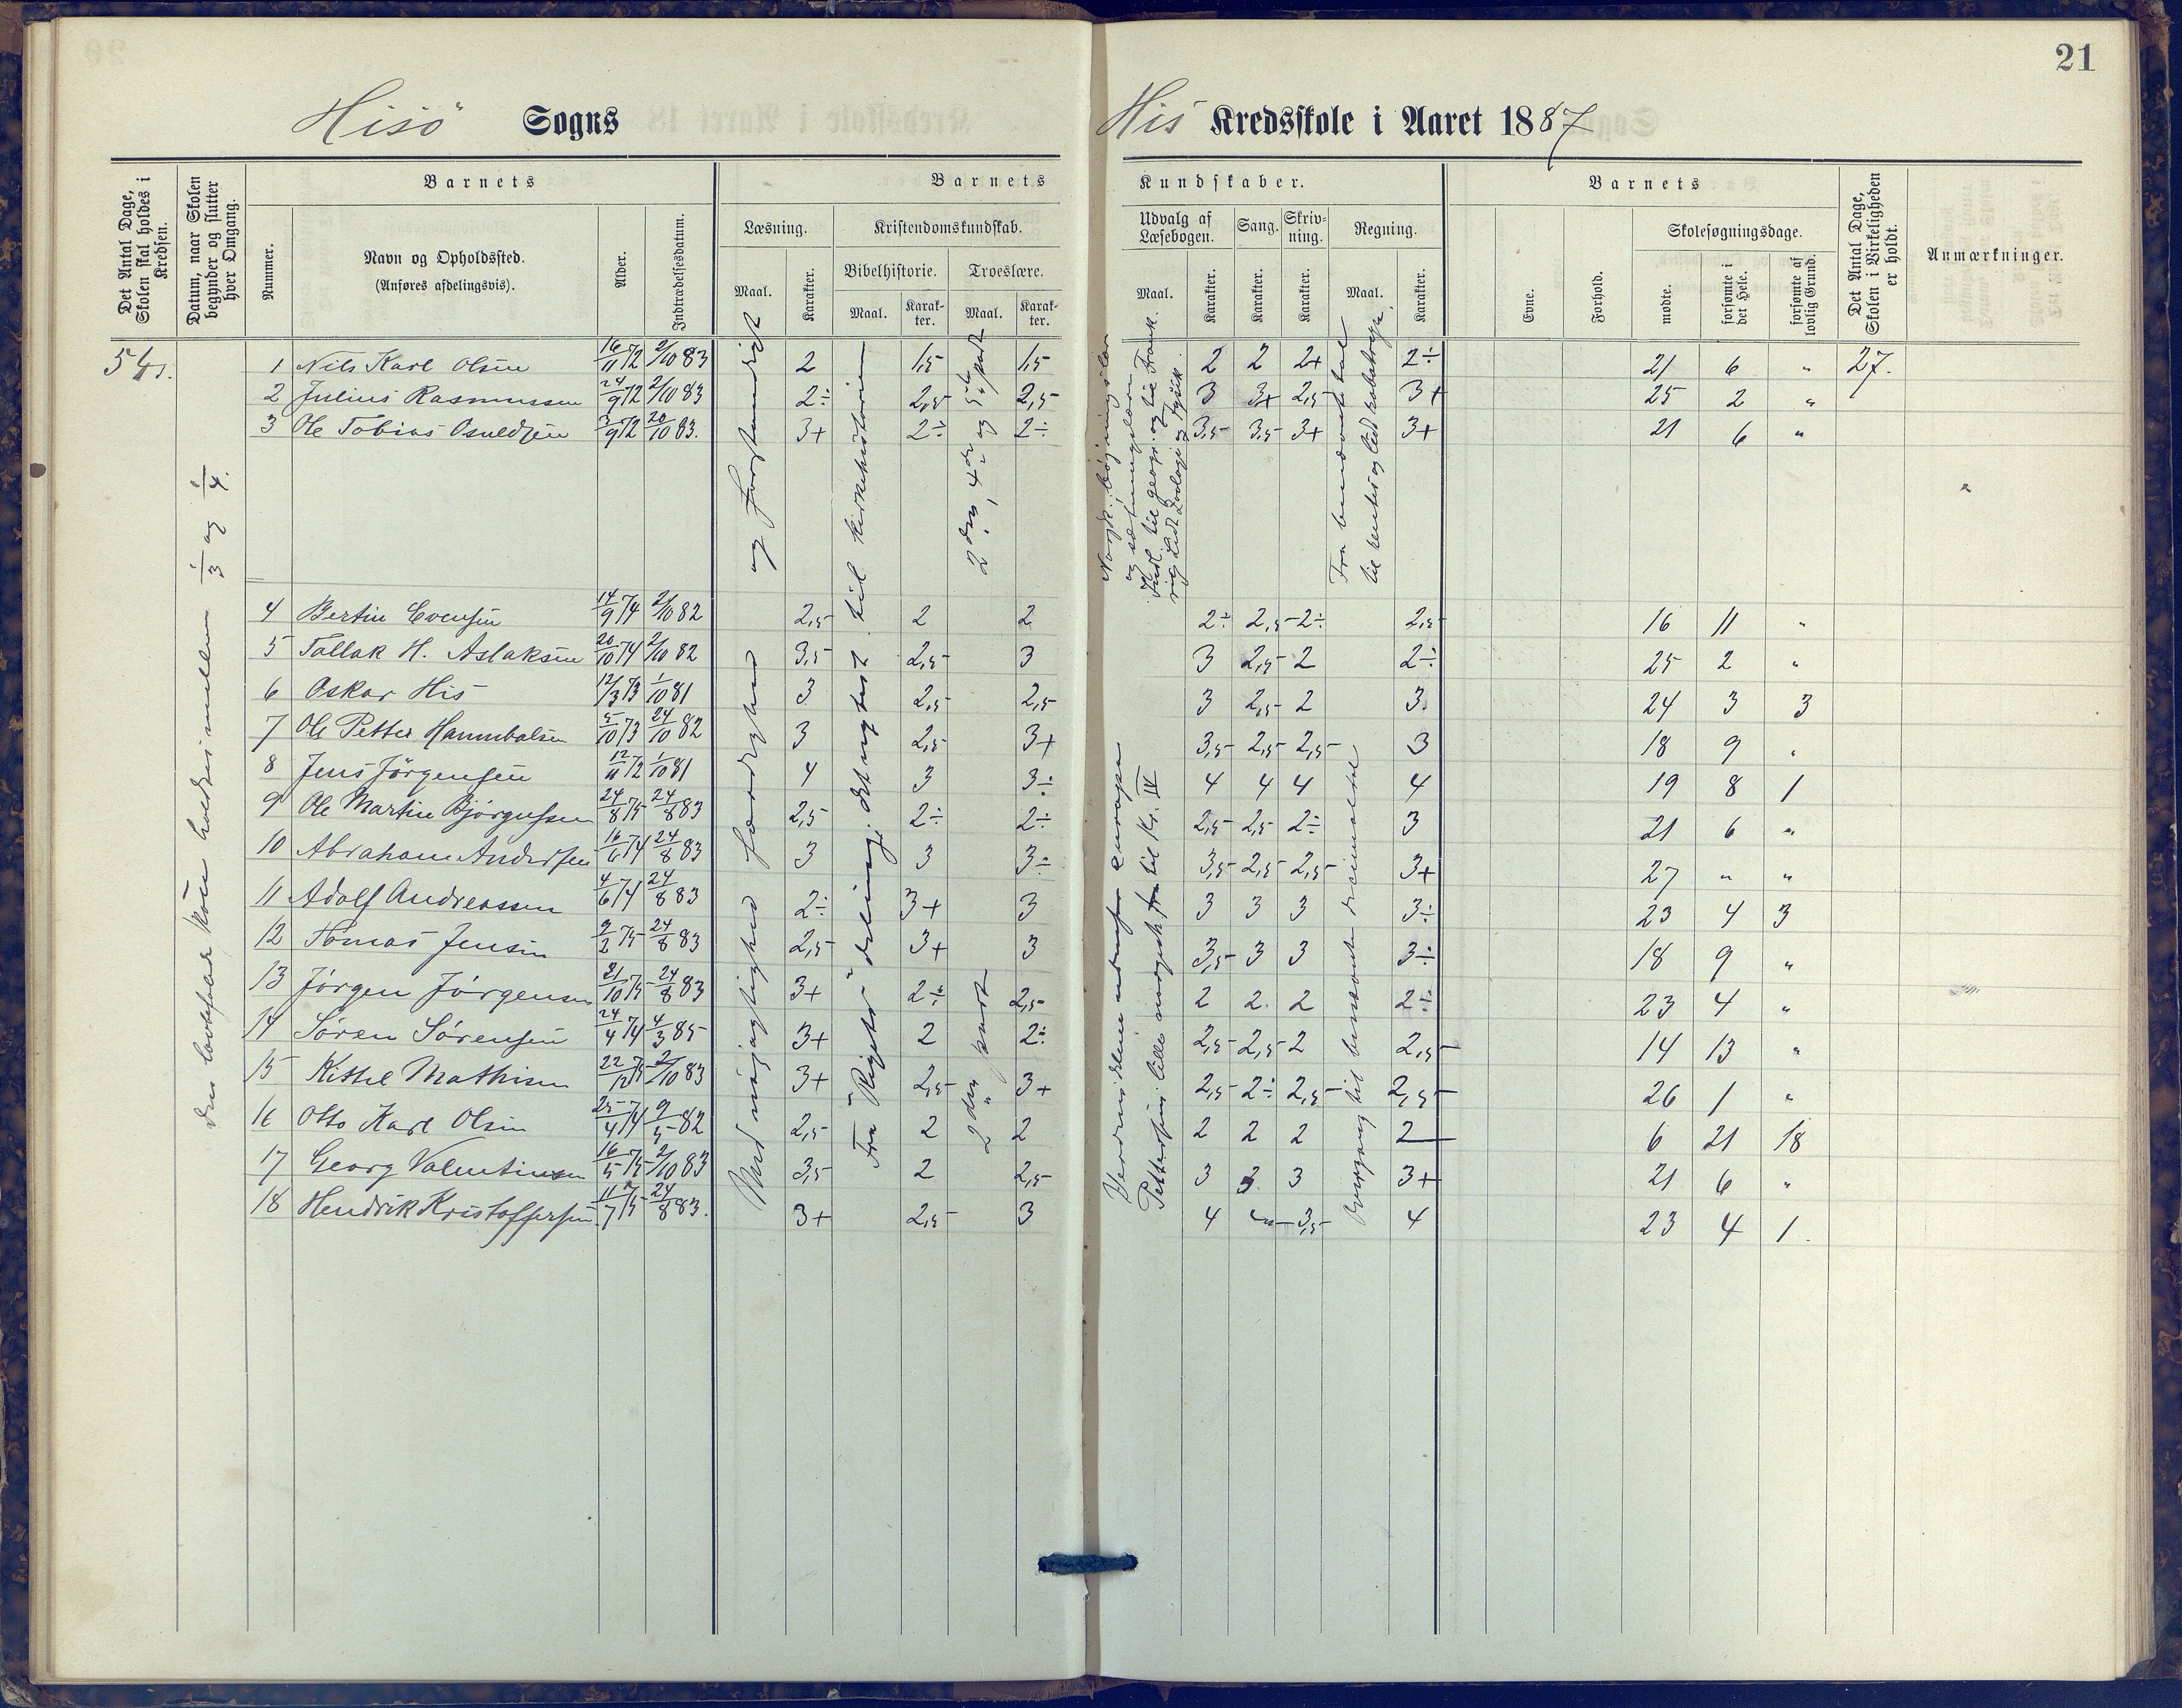 21
Hisö Sogns
His Kredsskole i Aaret 1887
Det Antal Dage, Skolen skal holdes i Kredsen.
Datum, naar Skolen begynder og slutter hver Omgang.
Barnets
Nummer.
Navn og Opholdssted.
(Anføres afdelingsvis).
Alder.
Indtrædelsesdatum.
Barnets
Læsning.
Maal.
Karakter.
Kristendomskundskab.
Bibelhistorie.
Maal.
Karak-ter.
Troeslære.
Maal.
Karak-ter.
Kundskaber.
Udvalg af Læsebogen.
Maal.
Karakter.
Sang.
Karakter.
Skriv-ning.
Karakter.
Regning.
Maal.
Karakter.
Barnets
Evne.
Forhold.
Skolesøgningsdage.
mødte.
forsømte i det Hele.
forsømte af lovlig Grund.
Det Antal Dage, Skolen i Virkeligheden er holdt.
Anmærkninger.
54
1 Nils Karl Olsen 16/11 72 2/10 83 2 1,5 1,5 2 2 2+ 2÷ 21 6 " 27.
2 Julius Rasmussen 24/9 72 2/10 83 2÷ 2,5 2,5 3 3+ 2,5 3+ 25 2 "
3 Ole Tobias Osuldsen 3/9 72 20/10 83. 3+ 2÷ 2÷ 3,5 3,5 3+ 3+ 21 6 "
4 Bertin Evensen 14/9 74 2/10 82 2,5 2 2 2÷ 2,5 2÷ 2,5 16 11 "
5 Tallak H. Aslaksen 20/10 74 2/10 82 3,5 2,5 3 3 2,5 2 2÷ 25 2 "
6 Oskar His 12/3 73 1/10 81 3 2,5 2,5 3 2,5 2 3. 24 3 3
7 Ole Petter Hannibalsen 5/10 73 24/10 82 3 2,5 3+ 3,5 2,5 2,5 3 18 9 "
8 Jens Jörgensen 12/11 72 1/10 81 4 3 3÷ 4 4 4 4 19 8 1
9 Ole Martin Bjørgufsen 24/8 75 24/8 83 2,5 2÷ 2÷ 2,5 2,5 2÷ 3 21 6 "
10 Abraham Andersen 16/6 74 24/8 83 3 3 3÷ 3,5 2,5 2,5 3+ 27 " "
11 Adolf Andreassen 4/6 74 24/8 83 2÷ 3+ 3 3 3 3 3÷ 23 4 3
12 Tomas Jensen 9/2 75 24/8 83 2,5 3+ 3 3,5 3 3 3÷ 18 9 "
13 Jörgen Jörgensen 21/10 75 24/8 83 3+ 2÷ 2,5 2 2. 2 2÷ 23 4 "
14 Sören Sörensen 24/4 74 4/3 85 3+ 2 2÷ 2,5 2,5 2 2,5 14 13 "
15 Kittel Mathisen 22/12 75 2/10 83 3+ 2,5 3+ 2,5 2÷ 2,5 2,5 26 1 "
16 Otto Karl Olsen 25/4 74 9/5 82 2,5 2 2 2 2 2 2 6 21 18
17 Georg Valentinsen 16/5 75 2/10 83 3,5 2 2,5 3 3 3 3+ 21 6 "
18 Hendrik Kristoffersen 11/7 75 24/8 83. 3+ 2,5 3 4 3,5 4 23 4 1.
den lovbefalede skole holdes imellem 1/3 og 1/4.
Med nöjagtighed færdighed og forstandighet
Fra "Rigets" deling: det nytest. til kirkehistorien
2den part
2den, 4de og 5te part
Verdensdelene udenfor europa
Pettersens lille norgesh. til Kr. IV
og sætningslæren
Overgang til benævnte decimaltal
Fra benævnte tal